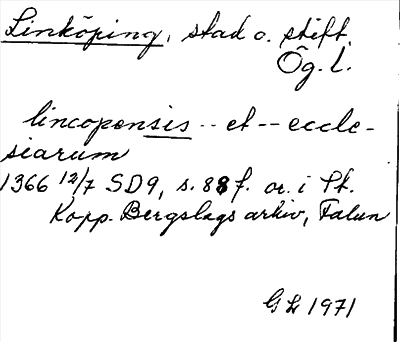 Linköping, stad o. stift.
Ög. l.
lincopensis -- et -- eccle-
siarum
1366 12/7 SD9, s. 88 f. or. i St.
Kopp. Bergslags arkiv, Falun
GL 1971